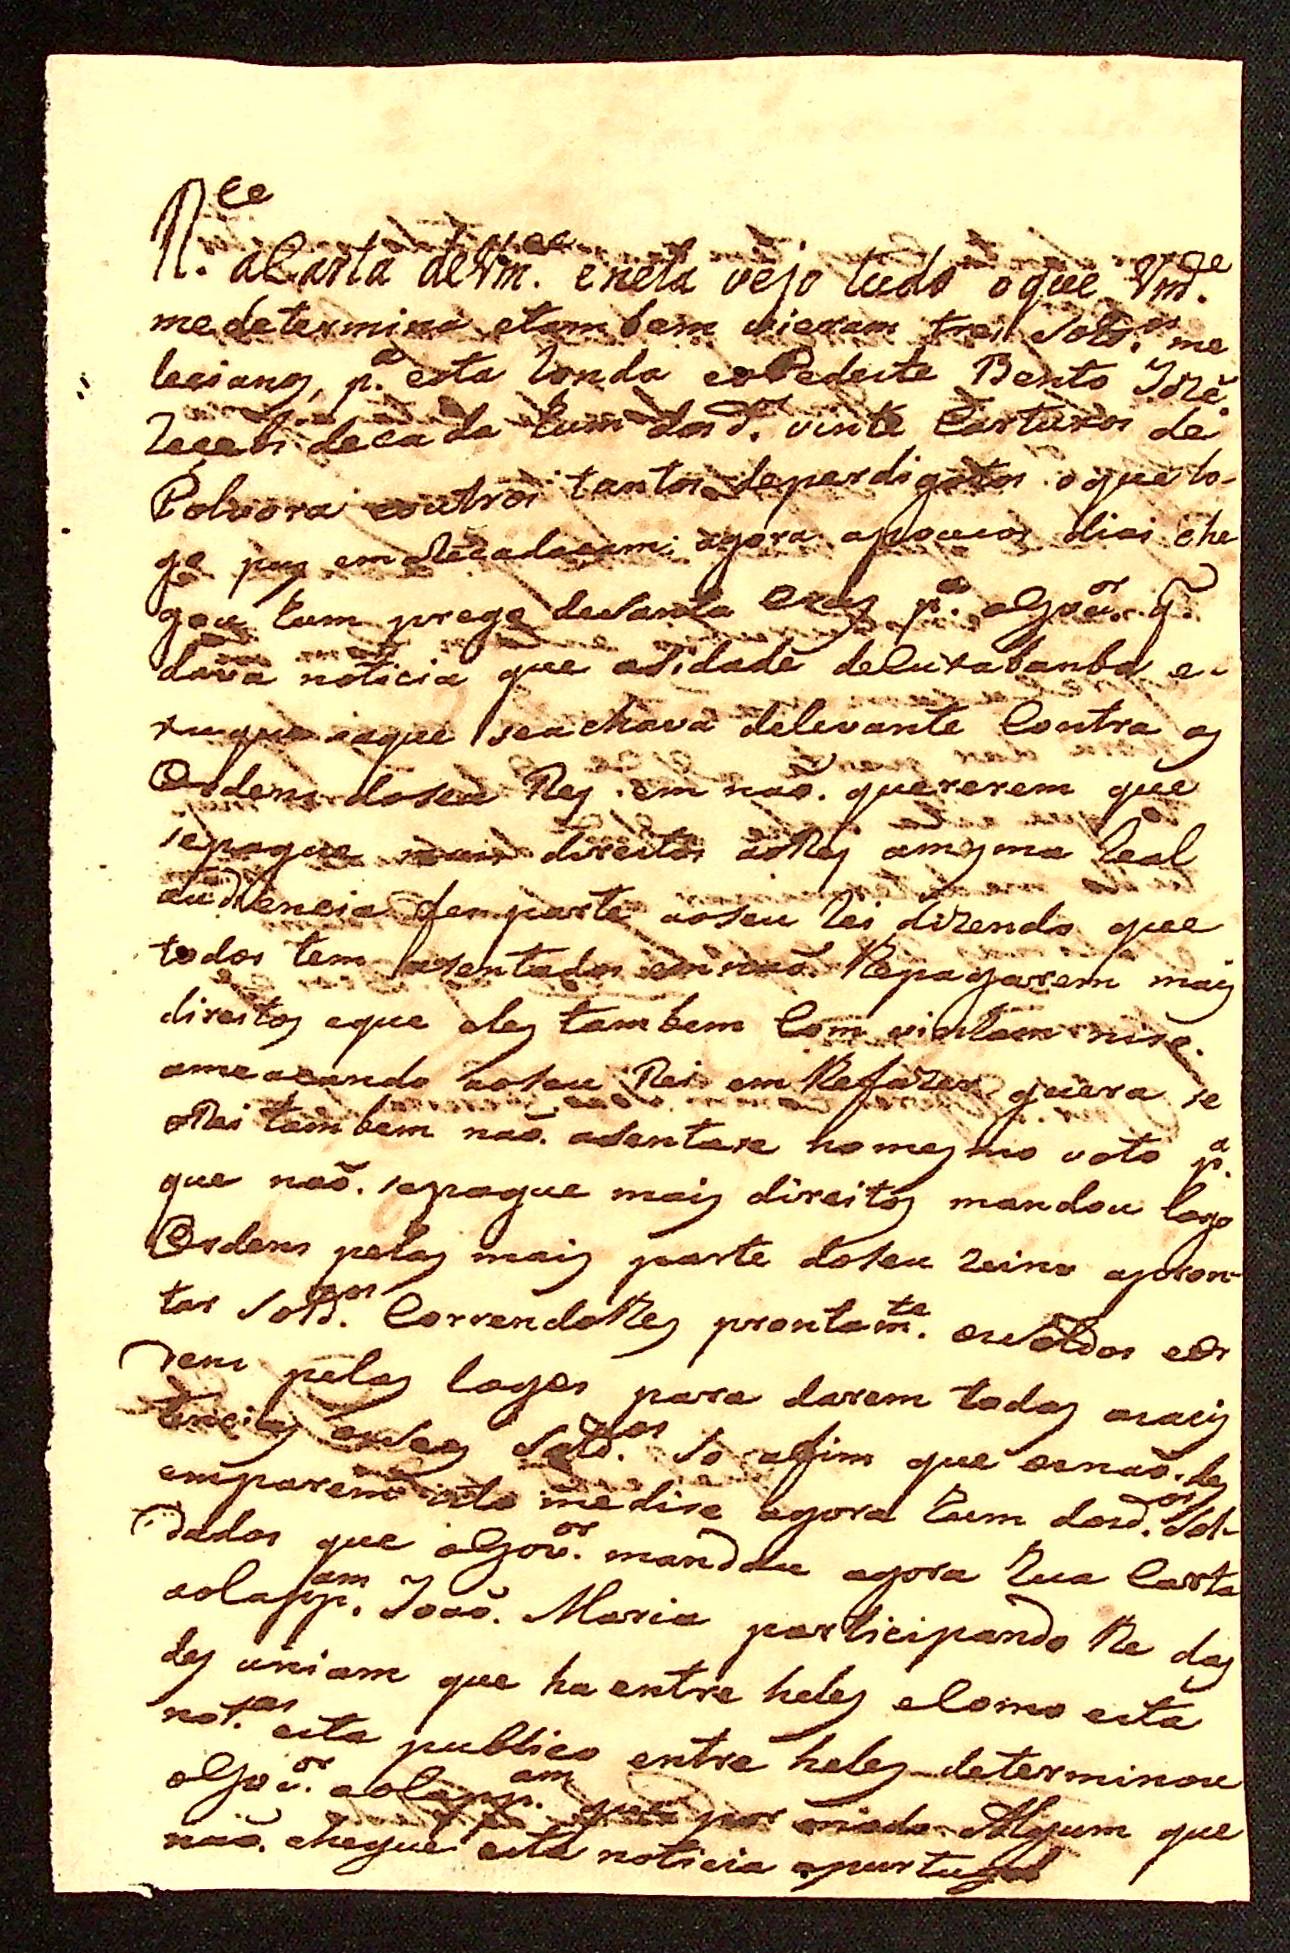 R.ce
a Carta de Vm.ce e neta vejo tudo oque Vm.ce
me determina etambem vieram tres Sold.os me
lecianos, p.a esta Ronda eo Pedeste Bento Jozê
Recebi de cada hum dos d.os vinte Cartuxos de
Polvora eoutros tantos de perdigotos oque lo-
go pus em Recadacam; agora apoucos dias che
gou hum prego de Santa Cruz p.a oGov.or q.
dava noticia que aSidade de Curabamba e
 seachava delevante Contra os
Ordens doseu Rey em não. quererem que
sepague mais direitos aoRey amesma Real
audiencia dem parte aoseu Rei dizendo que
todos tem asentados em não Repagarem mais
direitos eque eles tambem Com vinham niso.
ameacando aoseu Rei em Refazer guera se
oRei tambem não. asentase nomesmo voto p.a
que não. sepague mais direitos mandou logo
Ordens pelas mais parte doseu Reino apron-
tar Sold.os CorrendoRes prontam.te osSoldos eOr
dens pelas Cayxas para darem todas asacis
tencias aoseos Sold.os so afim que osnão. des
emparem isto medise agora hum dosd.os Sol-
dados que oGov.or mandou agora hua Carta
aoCapp.am João. Maria participando Re das
des uniam que ha entre heles eComo esta
not.as esta publico entre heles determinou
oGov.or aoCapp.am que por modo Algum que
não. chegue esta noticia apurtugal